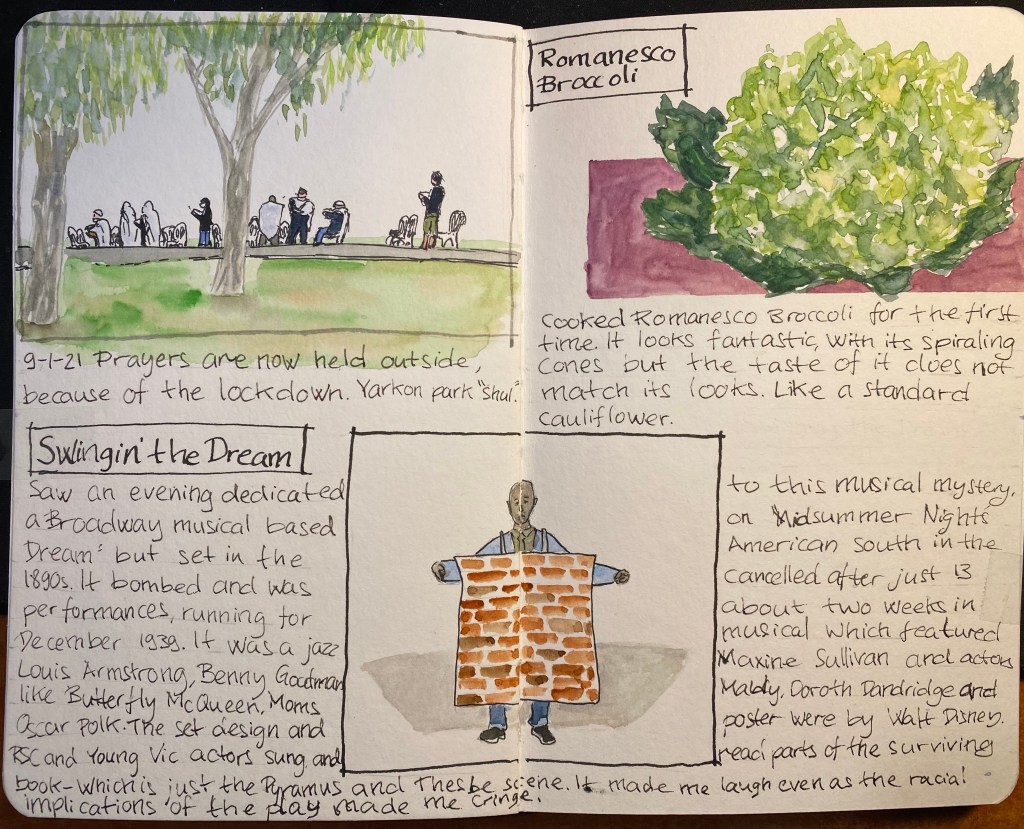 9-1-21 Prayers are now held outside,
because of the lockdown. Yarkon park "Shul."
Romanesco
Broccoli
Cooked Romanesco Broccoli for the first
time. It looks fantastic, with its spiraling
cones but the taste of it does not
match its looks. Like a standard
cauliflower.
Swingin' the Dream
Saw an evening dedicated to this musical mystery,
a Broadway musical based on "Midsummer Nights
Dream" but set in the American South in the
1890s. It bombed and was cancelled after just 13
performances, running for about two weeks in
December 1939. It was a jazz musical which featured
Louis Armstrong, Benny Goodman Maxine Sullivan and actors
like Butterfly McQueen, Moms Mably, Doroth Dandridge and
Oscar Polk. The set design and poster were by Walt Disney.
RSC and Young Vic actors sung and read parts of the surviving
book-which is just the Pyramus and Thesbe scene. It made me laugh even as the racial
implications of the play made me cringe.